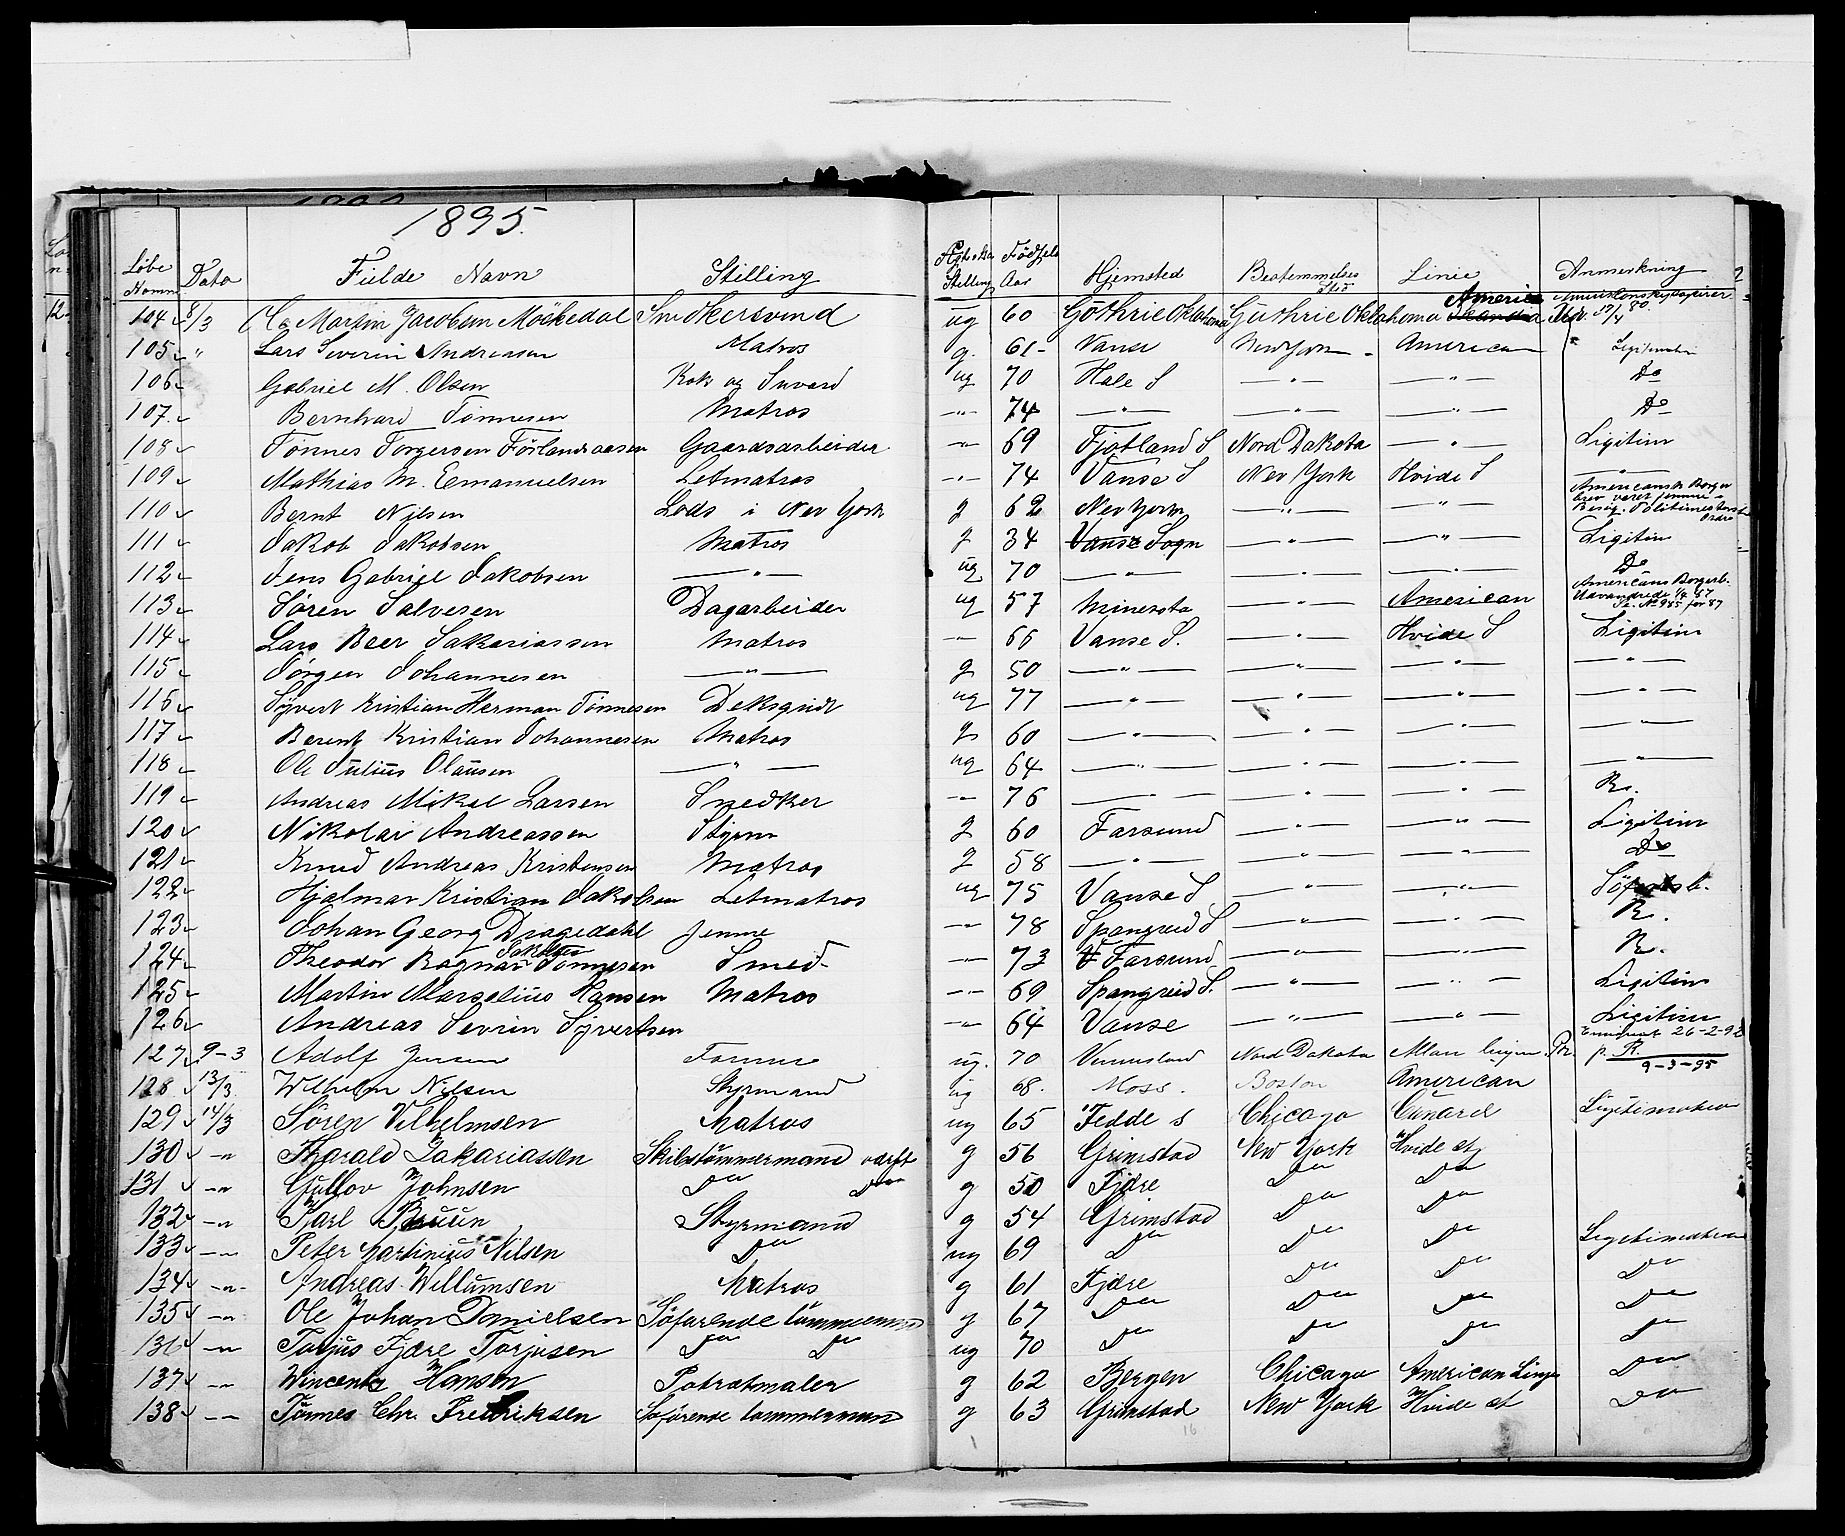 1895.
Løbe Nomm Dato Fulde Navn Stilling Ægteska Stilling Fødsels Aar Hjemsted Bestemmelses Sted Linie Anmerkning
104 8/3 Martin Jacobsen Möskedal Snedkersvend ug 60 Guthrie Oklahoma Guthrie Oklahoma America
105 " Lars Severin Andreasen Matros g. 61 Vanse New York American Legitimation
106 Gabriel M. Olsen Kok og Stuvard ug 70 Hale S —"— —"— Do
107 Bernhard Tönnesen Matros —"— 74 —"— —"— —"— Do
108 Tönnes Torgersen Förlandsaasen Gaardsarbeider —"— 69 Fjotland S Nord Dakota —"— Ligitim
109 Mathias M. Emanuelsen Letmatros —"— 74 Vanse S New York Hvide S —"—
110 Bernt Nilsen Lods i New York g 62 New York —"— —"— Americansk Borger brev
111 Jakob Jakobsen Matros g 34 Vanse Sogn —"— —"— Ligitim
112 Jens Gabriel Jakobsen —"— ug 70 —"— —"— —"— Do
113 Søren Salvesen Dagarbeider ug 57 Minersota —"— American Americans Borgerb. Udvandrede 1/4 87 No 985 for 87
114 Lars Beer Sakariassen Matros —"— 66 Vanse S. —"— Hvide S Ligitim
115 Jörgen Johannesen —"— g 50 —"— —"— —"— —"—
116 Syvert Kristian Herman Tönnesen Deksgudt ug 77 —"— —"— —"— —"—
117 Berent Kristian Johannesen Matros g 60 —"— —"— —"— —"—
118 Ole Julius Olausen —"— ug 64 —"— —"— —"— —"—
119 Andreas Mikal Larsen Snedker —"— 76 —"— —"— —"— R.
120 Nikolai Andreassen Styrm g 60 Farsund —"— —"— Ligitim
121 Knud Andreas Kristensen Matros g 58 —"— —"— —"— Do
122 Hjalmar Kristian Jakobsen Letmatros ug 75 Vanse S —"— —"—
123 Johan Georg Dragedahl Jenne —"— 78 Spangreid S —"— —"— R.
124 Theodor Ragnar Jakobus Tönnesen Smed —"— 73 Farsund —"— —"— R.
125 Martin Marselius Hansen Matros —"— 69 Spangreid S. —"— —"— Ligitim
126 Andreas Sevrin Syvertsen —"— 64 Vanse —"— —"— Ligitim
127 9-3 Adolf Jensen Tömme ug. 70 Vennesland Nord Dakota Allan linjen p. R. 9-3-95
128 13/3 Wilhelm Nilsen Styrmand ug 68. Moss. Boston American
129 14/3 Søren Vilhelmsen Matros ug 65 Fedde s Chicago Cunard Legitimation
130 —"— Tharald Zakariassen Skibstømmermand værft g 56 Grimstad New York Hvide st
131 —"— Gullov Johnsen Do Do g 50 Fjære Do Do
132 —"— Karl Bruun Styrmand g 54 Grimstad Do Do
133 —"— Peter Martinius Nilsen Do ug 69 Do Do Do Legitimation
134 —"— Andreas Willumsen Matros g 61 Fjære Do Do Do
135 —"— Ole Johan Danielsen Söfarende tömmerman g 67 Do Do Do Do
136 —"— Torjus Fjære Torjusen Do Do ug 70 Do Do Do Do
137 —"— Wincentz Hansen Potrætmaler g 62 Bergen Chicago American Linje Do
138 —"— Tønnes Chr. Fredriksen Söfarende tømmerman g 63 Grimstad New York Hvide st Do
16